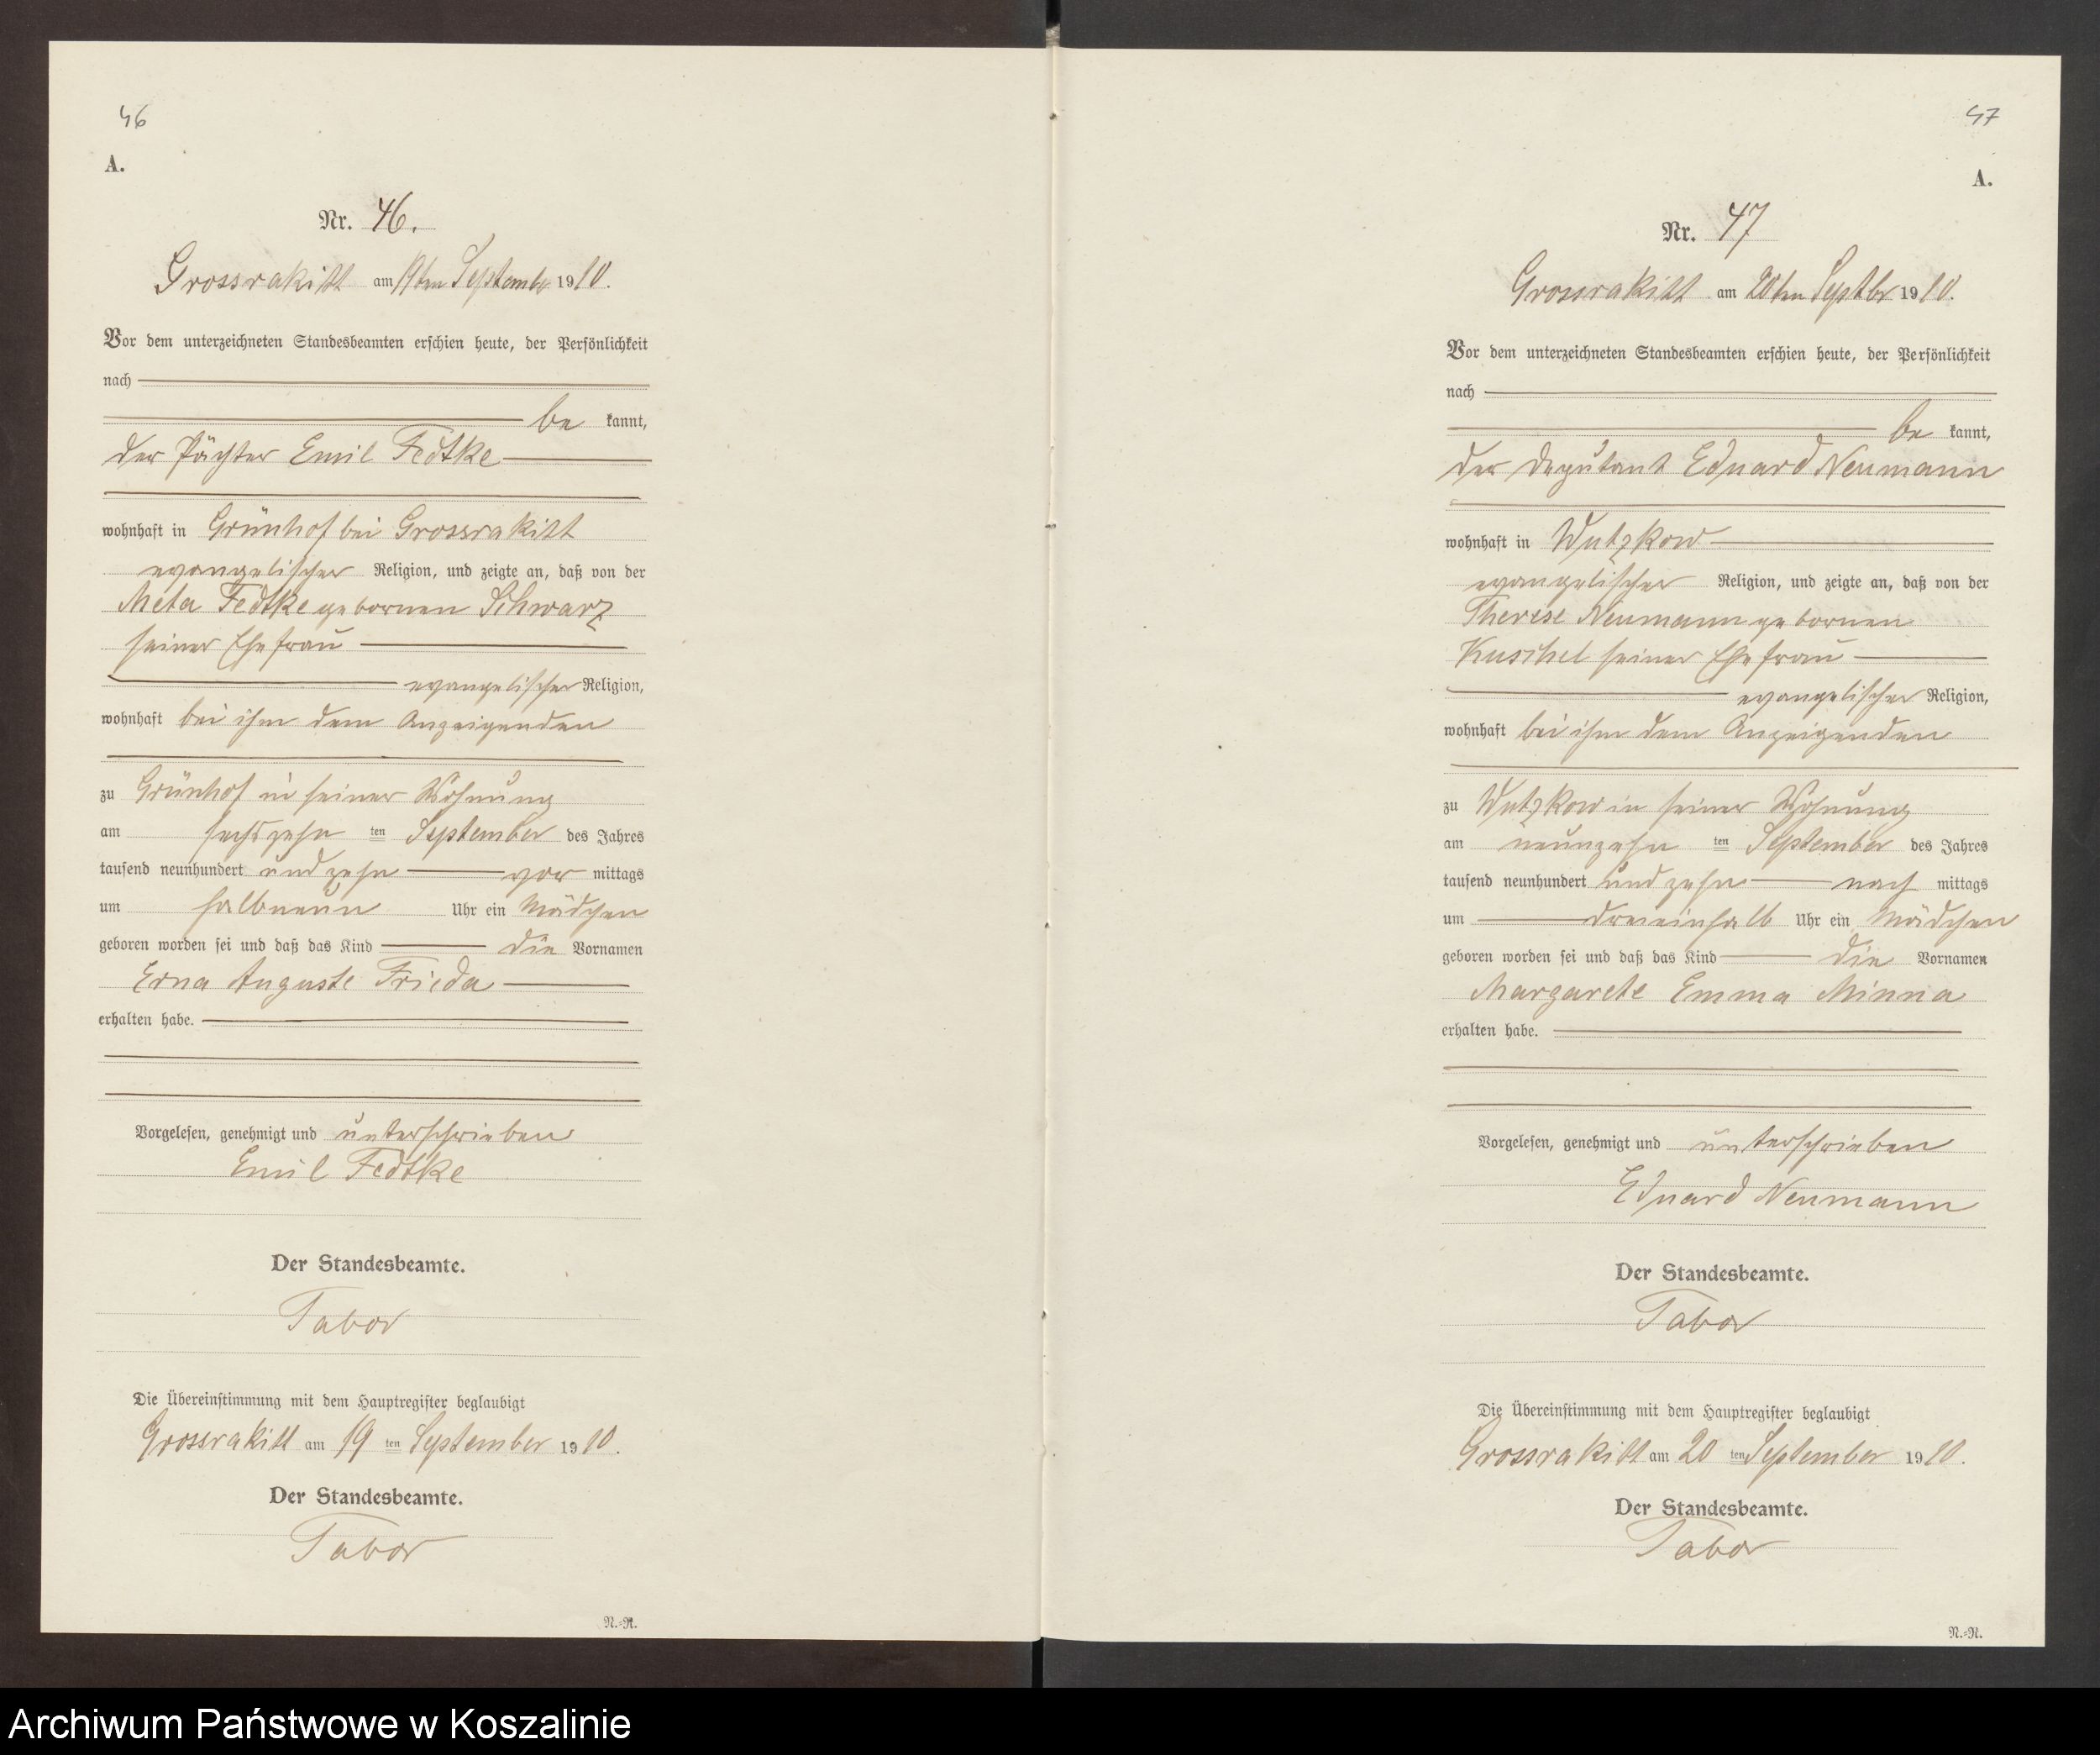 46
A.
Nr. 46.
Grossrakitt am 19ten September 1910.
Vor dem unterzeichneten Standesbeamten erschien heute, der Persönlichkeit
nach
be kannt,
der Pächter Emil Fedtke
wohnhaft in Grünhof bei Grossrakitt
evangelischer Religion, und zeigte an, daß von der
Meta Fedtke gebornen Schwarz
seiner Ehefrau
evangelischer Religion,
wohnhaft bei ihm dem Anzeigenden
zu Grünhof in seiner Wohnung
am sechszehn ten September des Jahres
tausend neunhundert und zehn vor mittags
um halbneun Uhr ein Mädchen
geboren worden sei und daß das Kind die Vornamen
Erna Auguste Frieda
erhalten habe.
Vorgelesen, genehmigt und unterschrieben
Emil Fedtke
Der Standesbeamte.
Tabor
Die Übereinstimmung mit dem Hauptregister beglaubigt
Grossrakitt am 19 ten September 1910.
Der Standesbeamte.
Tabor
N.-R.
47
A.
Nr. 47
Grossrakitt am 20ten Septbr 1910.
Vor dem unterzeichneten Standesbeamten erschien heute, der Persönlichkeit
nach
be kannt,
der Deputant Eduard Neumann
wohnhaft in Wutzkow
evangelischer Religion, und zeigte an, daß von der
Therese Neumann gebornen
Kuschel seiner Ehefrau
evangelischer Religion,
wohnhaft bei ihm dem Anzeigenden
zu Wutzkow in seiner Wohnung
am neunzehn ten September des Jahres
tausend neunhundert und zehn nach mittags
um dreieinhalb Uhr ein Mädchen
geboren worden sei und daß das Kind die Vornamen
Margarete Emma Minna
erhalten habe.
Vorgelesen, genehmigt und unterschrieben
Eduard Neumann
Der Standesbeamte.
Tabor
Die Übereinstimmung mit dem Hauptregister beglaubigt
Grossrakitt am 20 ten September 1910.
Der Standesbeamte.
Tabor
N.-R.
Archiwum Państwowe w Koszalinie